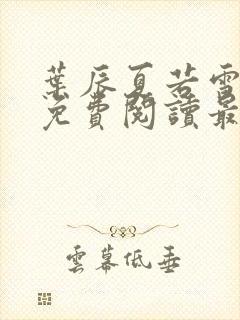 葉辰夏若雪
免費閱讀最
雲幕低垂